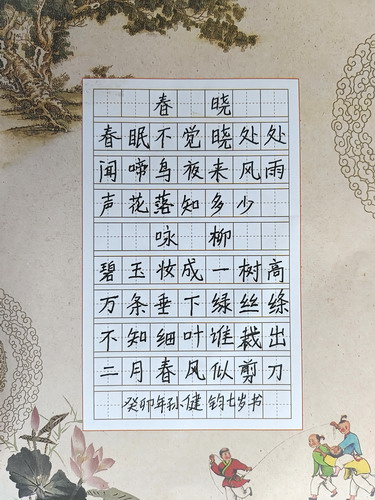 春晓
春眠不觉晓处处
闻啼鸟夜来风雨
声花落知多少
咏柳
碧玉妆成一树高
万条垂下绿丝绦
不知细叶谁裁出
二月春风似剪刀
癸卯年孙健钧七岁书